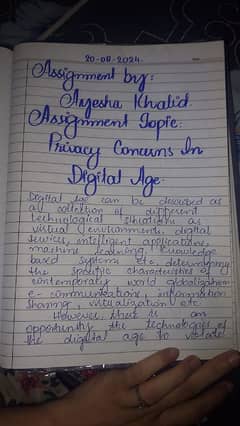 20-08-2024.
Assignment by:
Ayesha Khalid.
Assignment Topic:
Privacy Concerns In
Digital Age.
Digital Age can be described as
an collection of different
technological situations as
virtual environments, digital
services, intelligent applications,
machine learning, knowledge
based systems etc. determining
the specific characteristics of
contemporary world globalization
e-communications, information
sharing, virtualization etc.
However, there is an
opportunity the technologies of
the digital age to violate